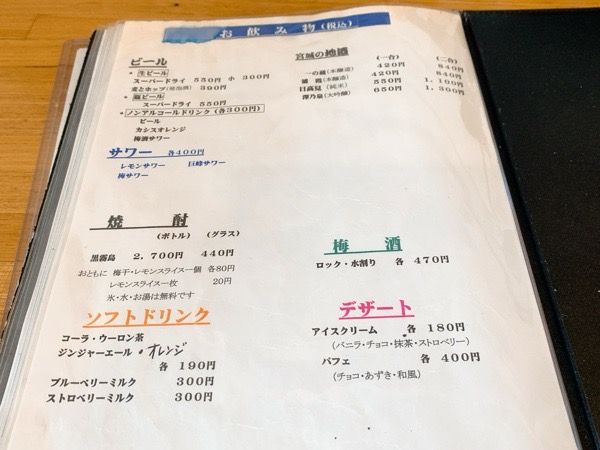 お飲み物(税込)
ビール
・生ビール
スーパードライ 550円 小 300円
麦とホップ(発泡酒) 390円
・瓶ビール
スーパードライ 550円
・ノンアルコールドリンク(各300円)
ビール
カシスオレンジ
梅酒サワー
サワー 各400円
レモンサワー 巨峰サワー
梅サワー
宮城の地酒 (一合) (二合)
一の蔵(本醸造) 420円 840円
浦霞(本醸造) 420円 840円
日高見(純米) 550円 1,100円
澤乃泉(大吟醸) 650円 1,300円
焼酎
(ボトル) (グラス)
黒霧島 2,700円 440円
おともに 梅干・レモンスライス一個 各80円
レモンスライス一枚 20円
氷・水・お湯は無料です
梅酒
ロック・水割り 各 470円
ソフトドリンク
コーラ・ウーロン茶
ジンジャーエール・オレンジ
各 190円
ブルーベリーミルク 300円
ストロベリーミルク 300円
デザート
アイスクリーム 各 180円
(バニラ・チョコ・抹茶・ストロベリー)
パフェ 各 400円
(チョコ・あずき・和風)